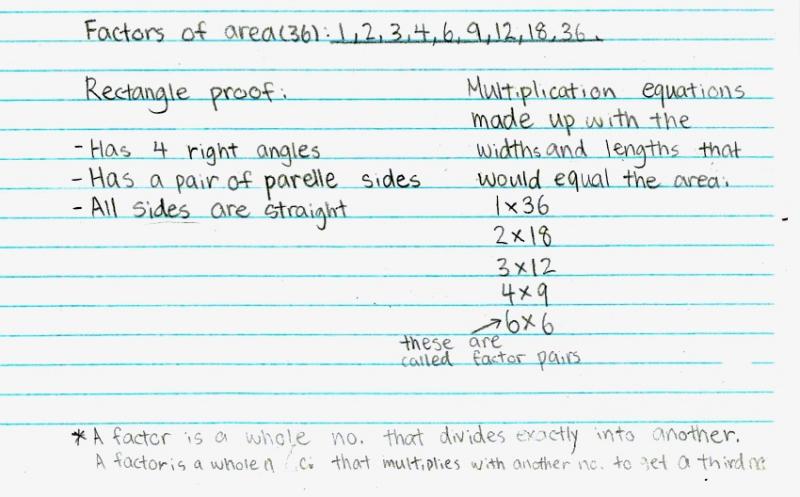 Factors of area(36): 1, 2, 3, 4, 6, 9, 12, 18, 36.
Rectangle proof:
- Has 4 right angles
- Has a pair of parelle sides
- All sides are straight
Multiplication equations
made up with the
widths and lengths that
would equal the area:
1 x 36
2 x 18
3 x 12
4 x 9
6 x 6
these are
called factor pairs
* A factor is a whole no. that divides exactly into another.
A factor is a whole that multiplies with another no. to get a third no.